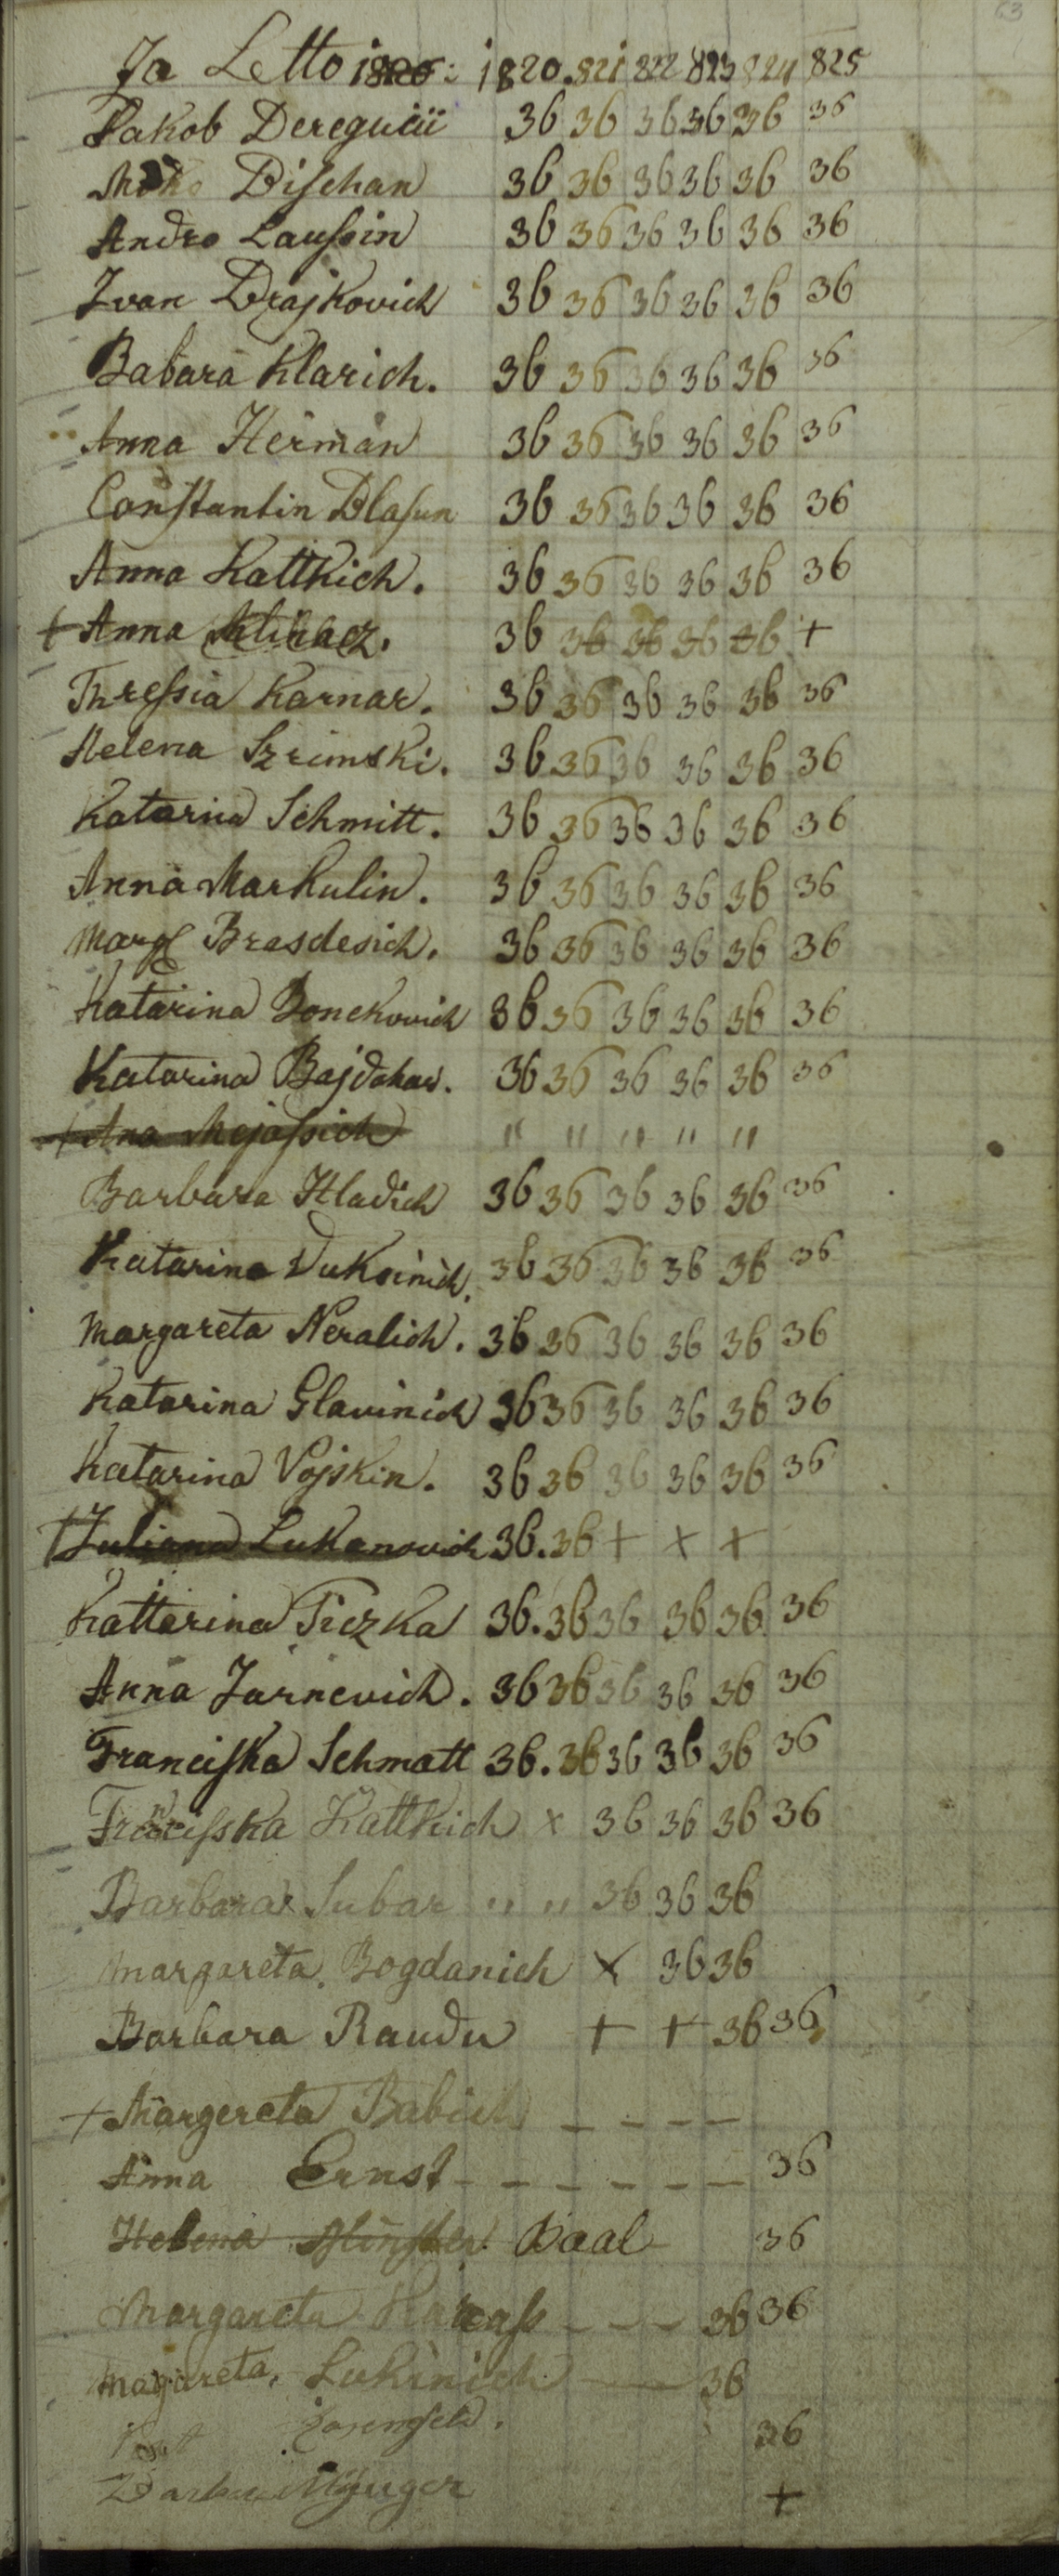 Ja Letto 1820: 1820. 821 822 823 824 825
Jakob Dereguüi 36 36 36 36 36 36
Mikо Dischan 36 36 36 36 36 36
Andro Laussin 36 36 36 36 36 36
Ivan Drajkovich 36 36 36 36 36 36
Babara Klarich. 36 36 36 36 36 36
Anna Herman 36 36 36 36 36 36
Constantin Blasun 36 36 36 36 36 36
Anna Kattkich. 36 36 36 36 36 36
+ Anna 36 36 36 36 36 +
Thressia Karnar. 36 36 36 36 36 36
Helena Szrimski. 36 36 36 36 36 36
Katarina Schmitt. 36 36 36 36 36 36
Anna Markulin. 36 36 36 36 36 36
Marg Bresdesich. 36 36 36 36 36 36
Katarina Bonckovich 36 36 36 36 36 36
Katarina Bajdahar. 36 36 36 36 36 36
+ Ana Mejassich " " " " "
Barbara Hladich 36 36 36 36 36 36
Katarina Vukšinich. 36 36 36 36 36 36
Margareta Neralich. 36 36 36 36 36 36
Katarina Glavinich 36 36 36 36 36 36
Katarina Vojskin. 36 36 36 36 36 36
+ Juliana Lukanovich 36. 36 + + +
Kattarina Ticzka 36. 36 36 36 36 36
Anna Jarnevich. 36 36 36 36 36 36
Franciska Schmatt 36. 36 36 36 36 36
Francisska Kattkich x 36 36 36 36
Barbara Subar " " 36 36 36
Margareta. Bogdanich x 36 36
Barbara Raudu + + 36 36
+ Margereta Babich - - - -
Anna Ernst - - - - - - 36
Helena Baal 36
Margareta Karcass - - - 36 36
Margareta. Lukinich — 36
36
+